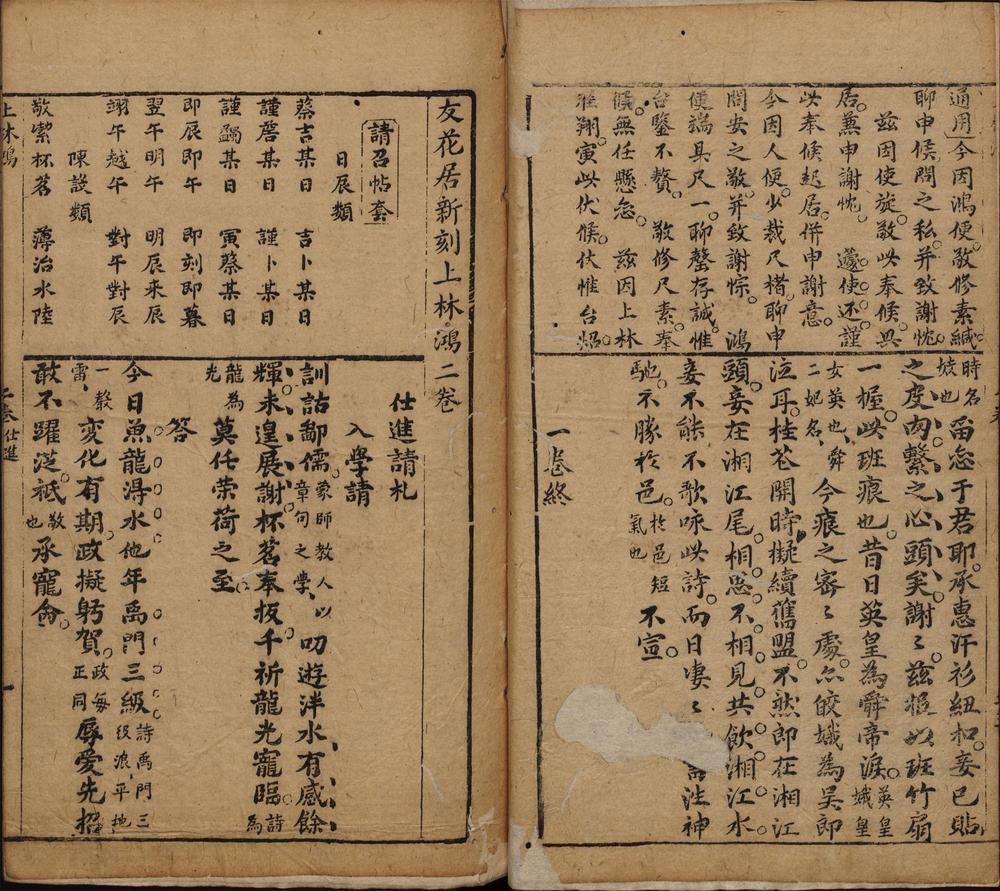 通用今因鴻便敬修素緘
聊申候問之私并致謝忱
茲因使旋敬此奉候興
居兼申謝忱　使还謹
此奉候起居併申謝意
今因人便少裁尺楮聊申
問安之敬并致謝悰　鴻
便端具尺一聊罄存誠惟
台鑒不贅　敬修尺素奉
候無任懸　茲因上林
翔寅此伏候伏惟台炤
時名妓也留于君耶承惠汗衫紐扣妾已貼
之皮肉繫之心頭矣謝〻茲以班竹扇
一握此班痕也昔日英皇為舜帝淚英皇娥皇
女英也舜二妃名今痕之密〻處尒皎為吳郎
泣耳桂花開時擬續舊盟不然即在湘江
頭妾在湘江尾相思不相見共飲湘江水
妾不能不歌咏此詩而日凄〻神
馳也不勝於邑於邑短氣也不宣
一卷終
友花居新刻上林鴻二卷
請召帖套
日辰類
蔡吉某日　吉卜某日
謹詹某日　謹卜某日
謹蠲某日　寅蔡某日
即辰即午　即刻即暮
翌午明午　明辰來辰
翊午越午　對午對辰
陳設類
敬潔杯茗　薄治水陸
仕進請札
入學請
訓詁鄙儒蒙師教人以章句之學叨遊泮水有感餘
輝未遑展謝杯茗奉扳千祈龍光寵臨詩為
龍為光莫任荣荷之至
答
今日魚龍淂水他年禹門三級詩禹門三級浪平地
一聲雷変化有期政擬躬賀政每正同辱愛先招
敢不躍泛祗敬也承寵禽
上林鴻
二卷仕進
一